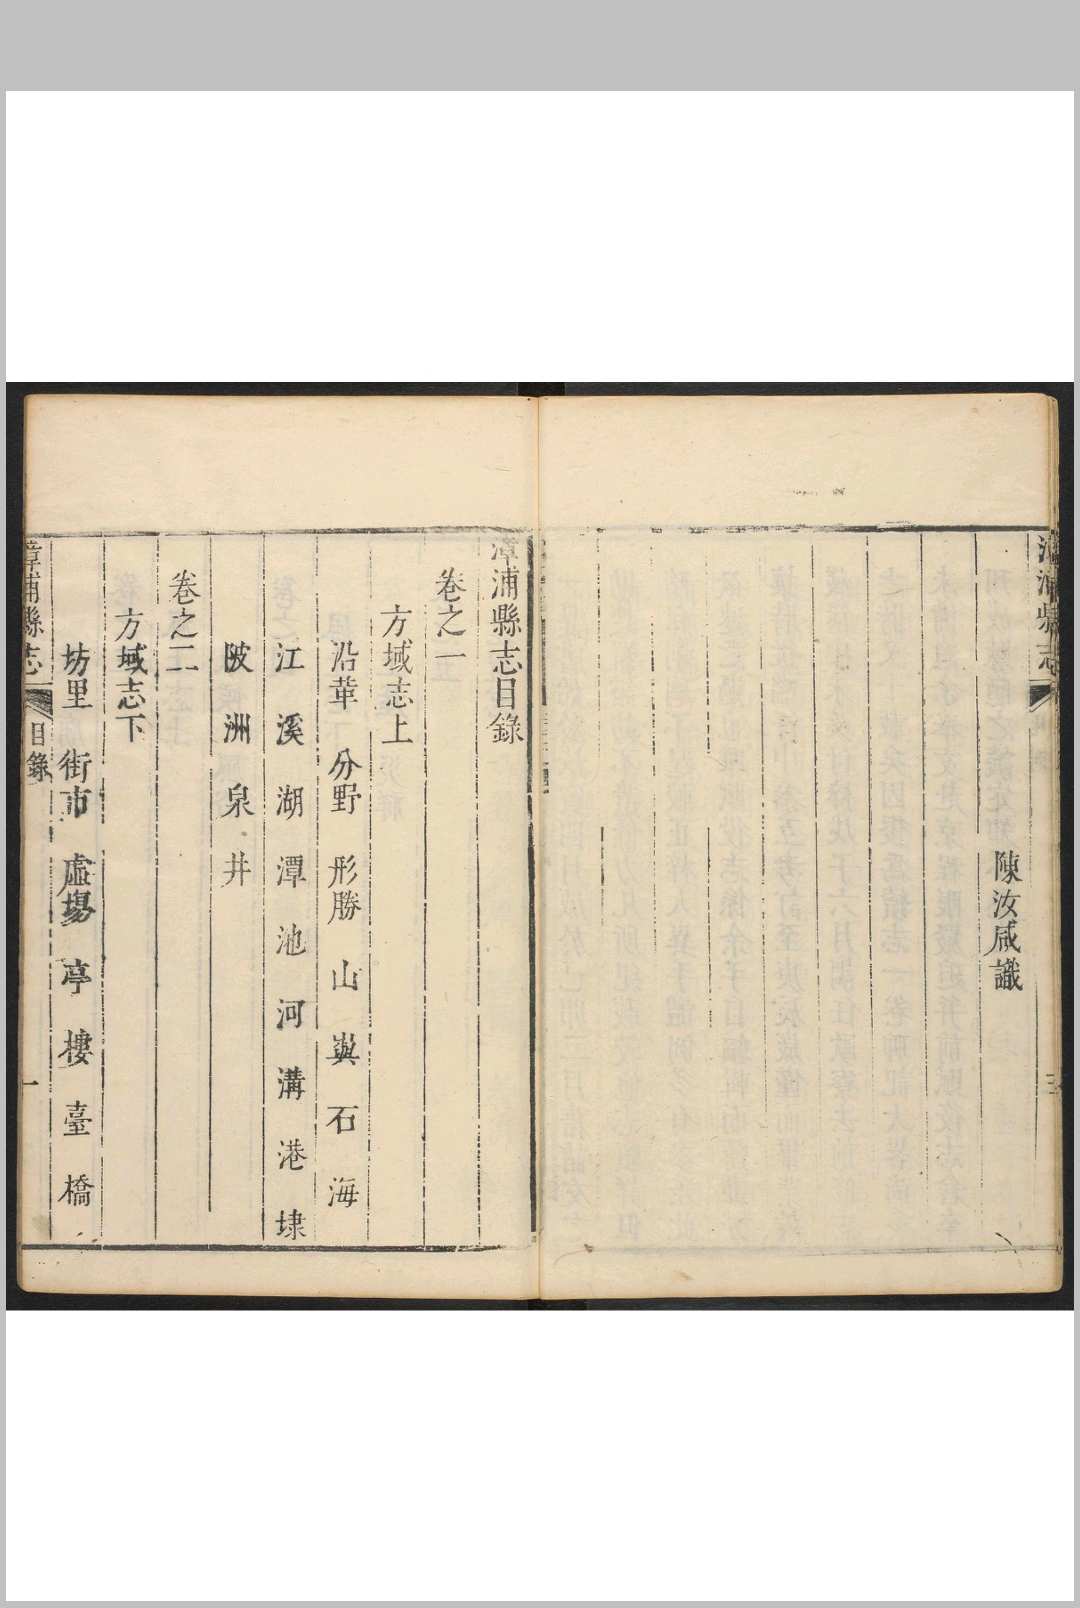 漳浦縣志
三
陳汝咸識
漳浦縣志目錄
卷之一
方域志上
沿革 分野 形勝 山 與 石 海
江 溪 湖 潭 池 河 溝 港 埭
陂 洲 泉 井
卷之二
方域志下
坊里 街市 虛場 亭 樓 臺 橋
漳浦縣志 目錄 一